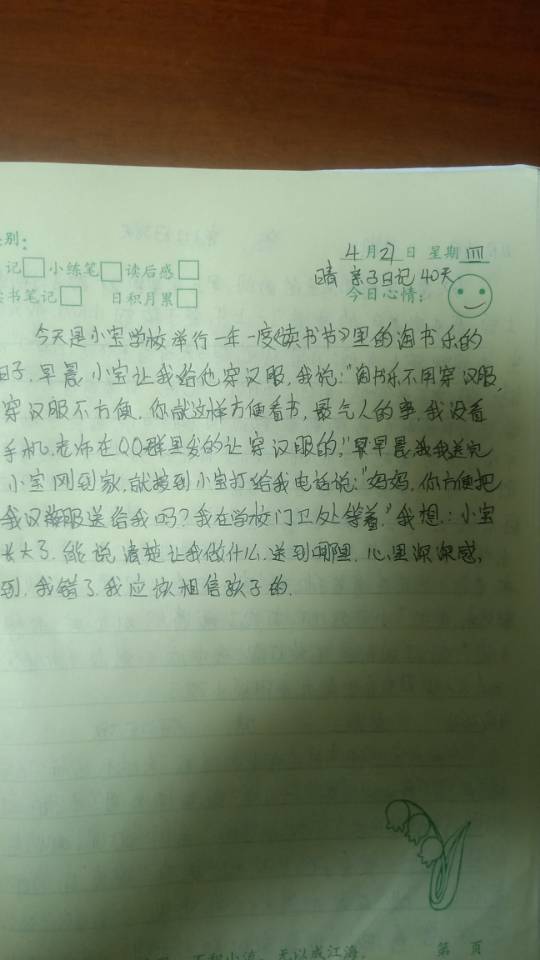 别:
4月27日 星期四
记 小练笔 读后感
晴 亲子日记40天
书笔记 日积月累 今日心情:
今天是小宝学校举行一年一度《读书节》里的淘书乐的
日子.早晨,小宝让我给他穿汉服,我说:"淘书乐不用穿汉服,
穿汉服不方便.你就这样方便看书,最气人的事,我没看
手机.老师在QQ群里发的让穿汉服的,"早晨,我送完
小宝刚到家,就接到小宝打给我电话说:"妈妈,你方便把
我汉服送给我吗?我在学校门卫处等着."我想:小宝
长大了.能说清楚让我做什么.送到哪里.心里深深感,
到,我错了.我应该相信孩子的.
无以成江海. 第 页